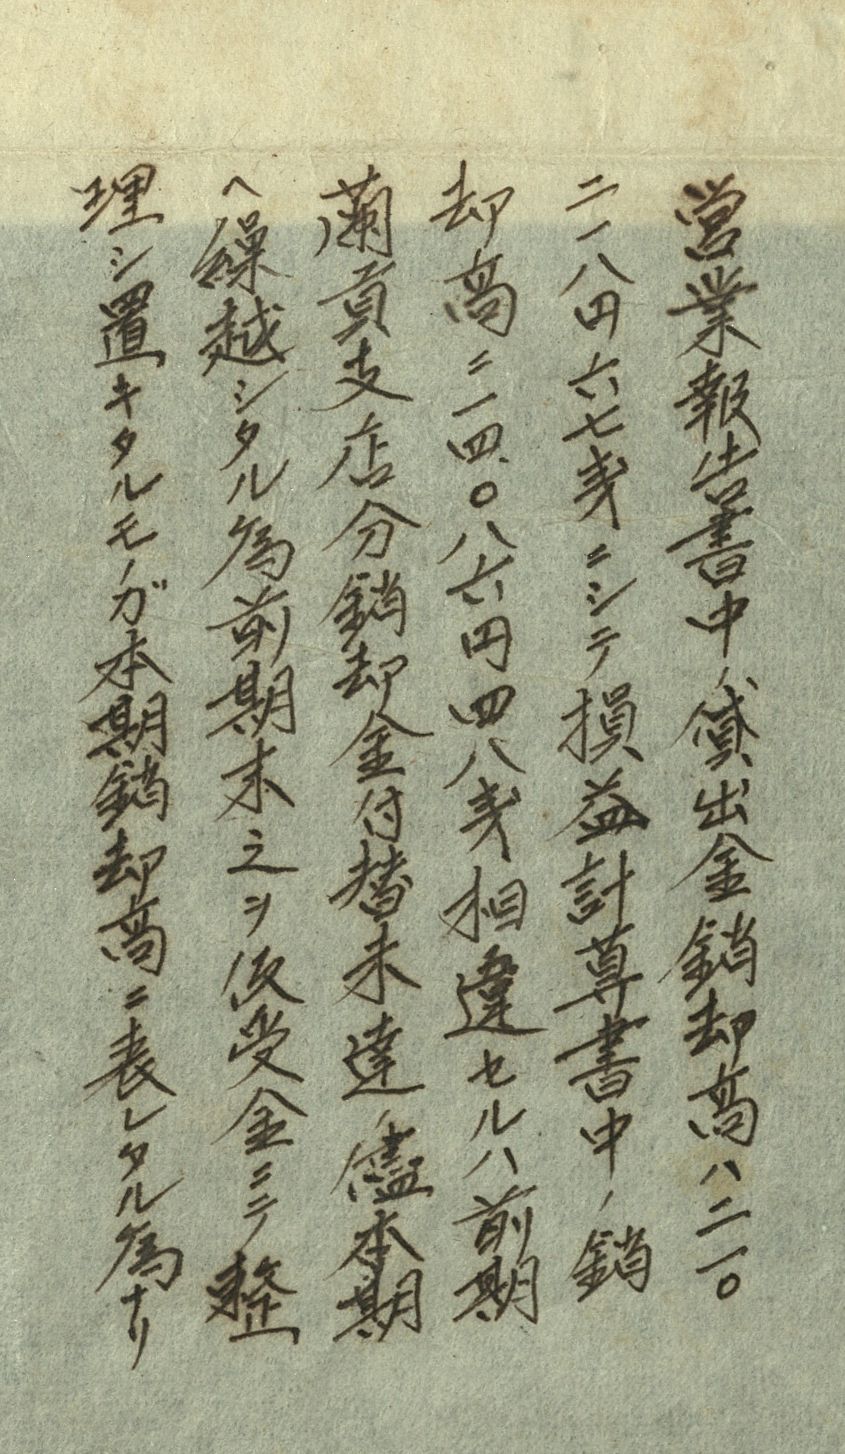 営業報告書中ノ貸出金銷却高ハ二一〇
二一八円六七戔ニシテ損益計算書中ノ銷
却高二一四.〇八六円四八戔相違セルハ前期
蘭貢支店分銷却金付替未達ノ儘本期
ヘ繰越シタル為前期末之ヲ仮受金ニテ整
理シ置キタルモノガ本期銷却高ニ表レタル為ナリ